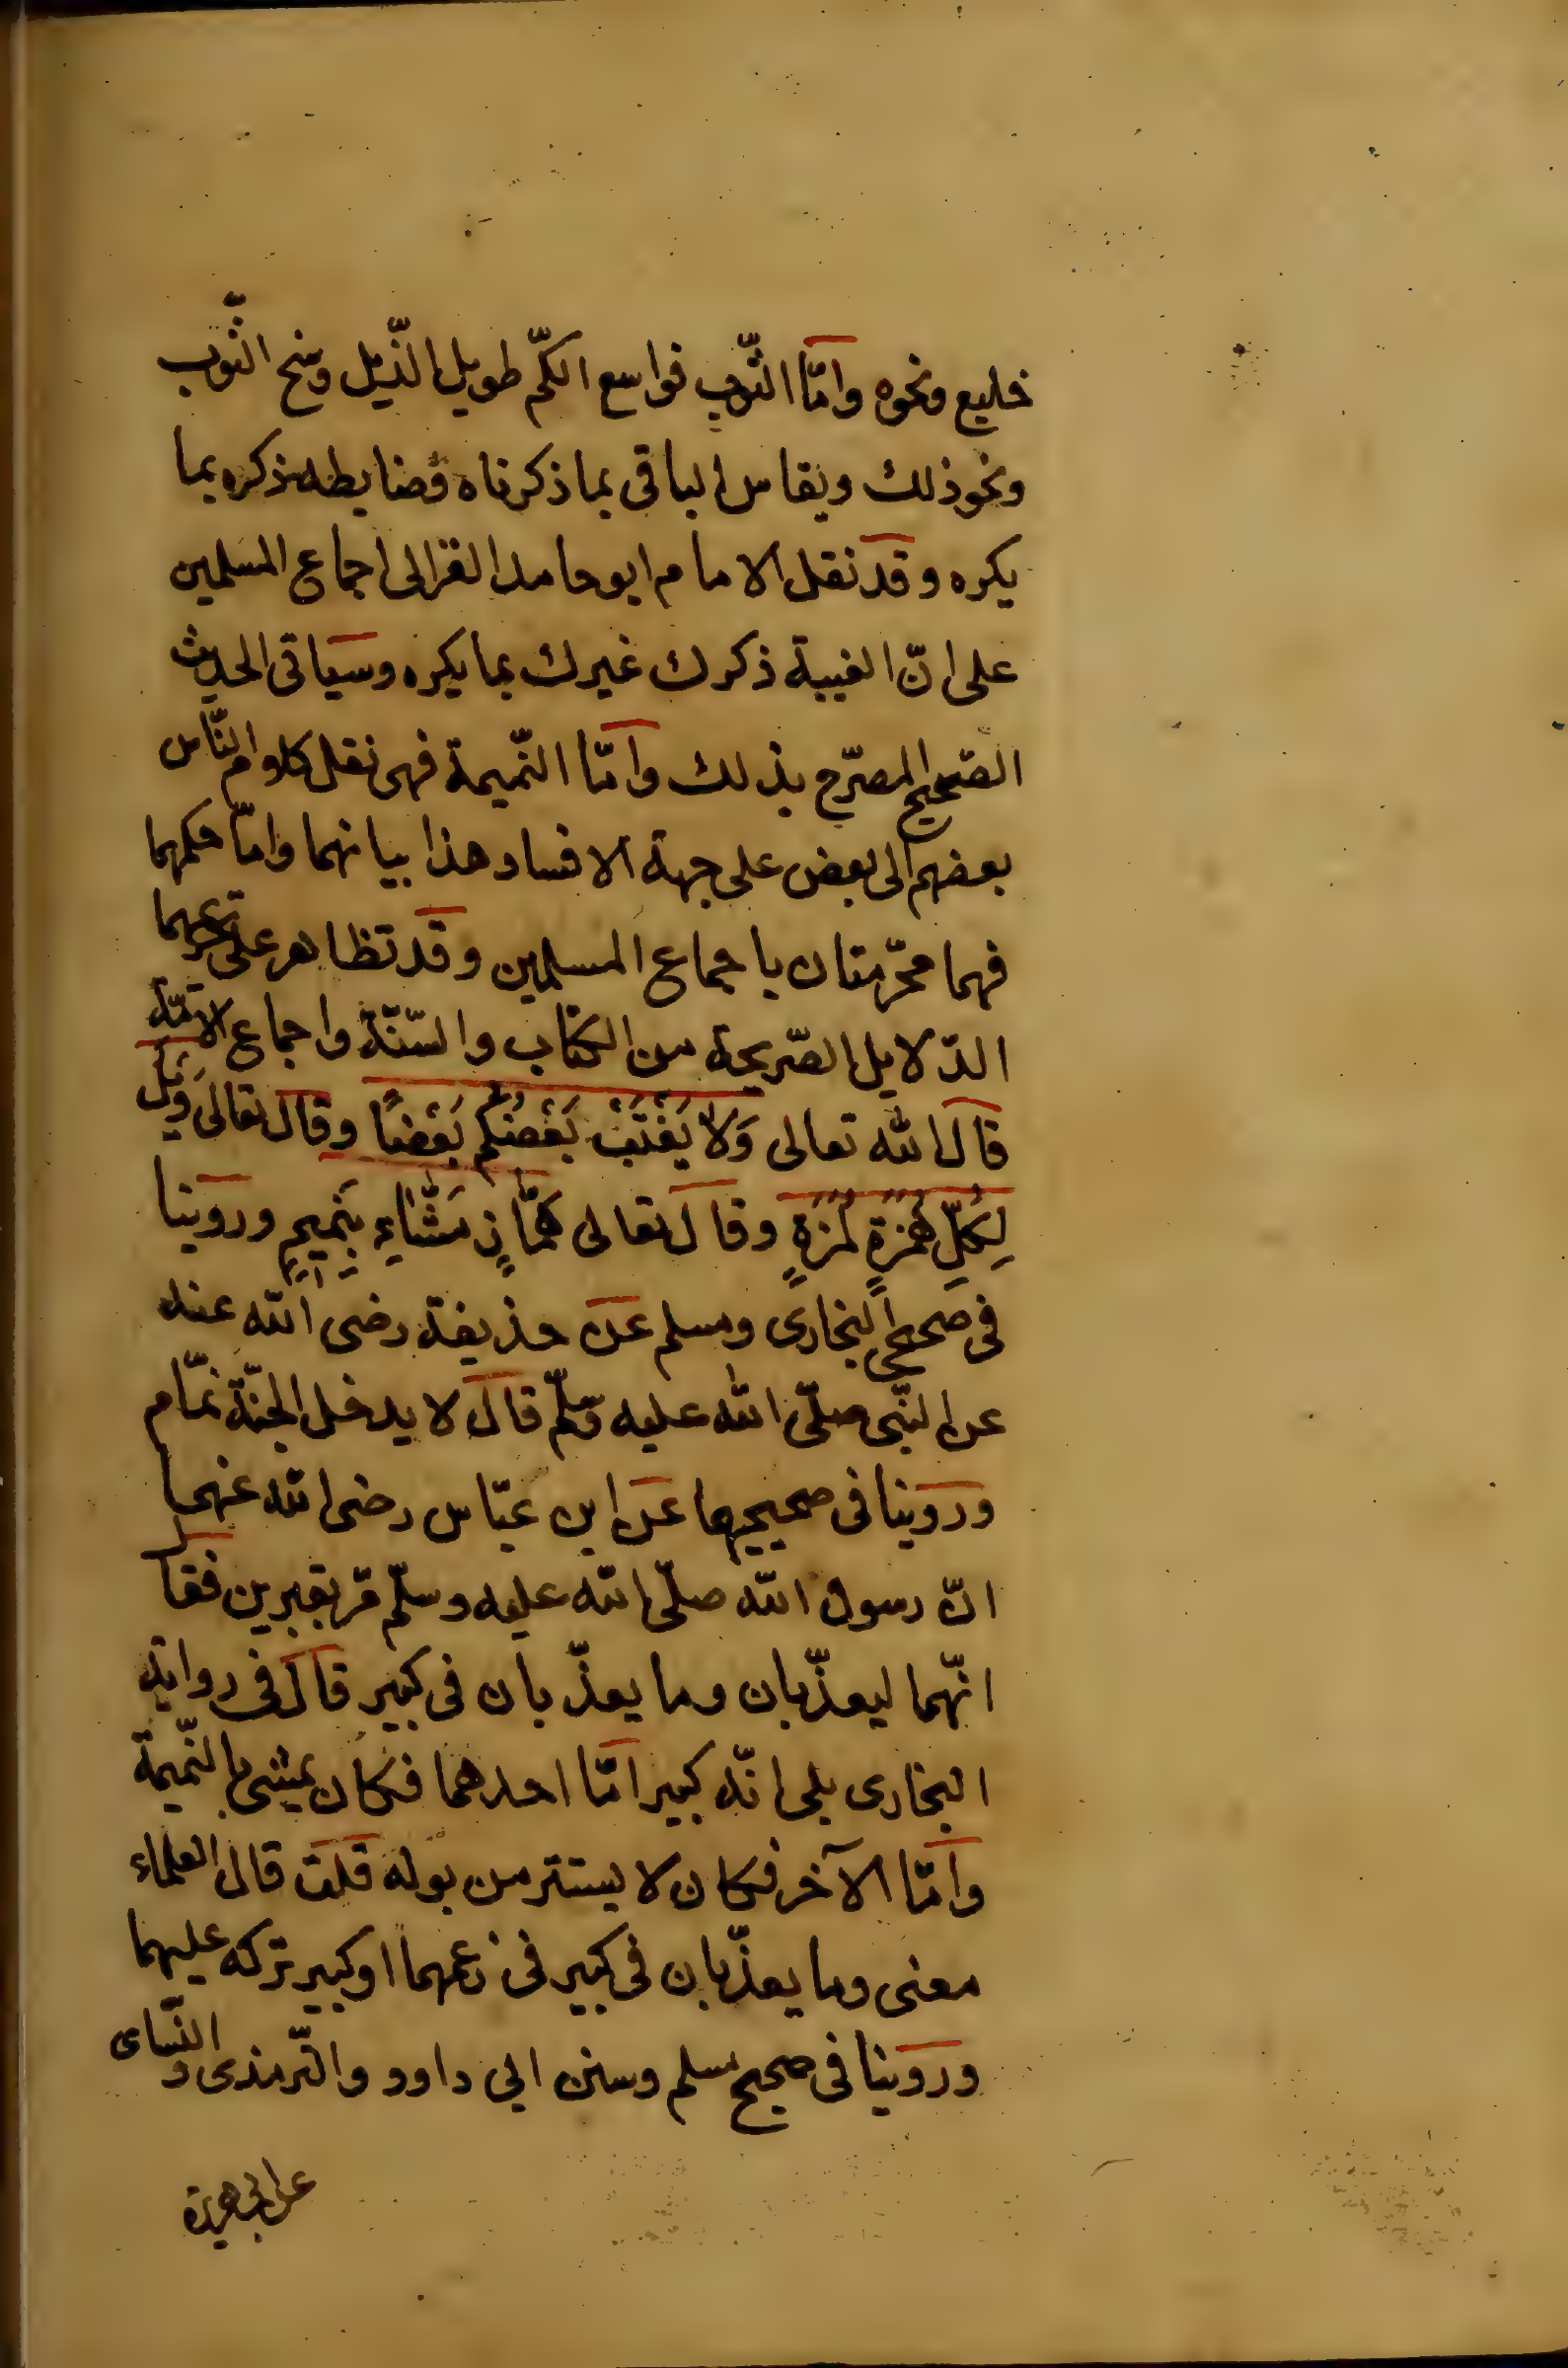 خليع ونحوه وامّا الثّوب فواسع الكمّ طويل الذّيل وسخ الثّوب
ونحو ذلك ويقاس الباقى بما ذكرناه وضابطه ذكره بما
يكره وقد نقل الامام ابو حامد الغزالى اجماع المسلمين
على انّ الغيبة ذكرك غيرك بما يكره وسياتى الحديث
الصّحيح المصرّح بذلك وامّا النّميمة فهى نقل كلام النّاس
بعضهم الى بعض على جهة الافساد هذا بيانهما وامّا حكمهما
فهما محرّمتان باجماع المسلمين وقد تظاهر على تحريمهما
الدّلايل الصّريحة من الكتاب والسّنّة واجماع الامّة
قال الله تعالى وَلَا يَغْتَبْ بَعْضُكُم بَعْضًا وقال تعالى وَيْلٌ
لِكُلِّ هُمَزَةٍ لُمَزَةٍ وقال تعالى هَمَّازٍ مَشَّاءٍ بِنَمِيمٍ وروينا
فى صحيحى البخارى ومسلم عن حذيفة رضى الله عنه
عن النّبى صلّى الله عليه وسّلم قال لا يدخل الجنّة نمّام
وروينا فى صحيحيهما عن ابن عبّاس رضى الله عنهما
انّ رسول الله صلّى الله عليه وسلّم مّر بقبرين فقال
انّهما ليعذّبان وما يعذّبان فى كبير قال فى رواية
البخارى بلى انّه كبير امّا احدهما فكان يمشى بالنّميمة
وامّا الآخر فكان لا يستتر من بوله قلت قال العلماء
معنى وما يعذّبان فى كبير فى زعمهما او كبير تركه عليهما
وروينا فى صحيح مسلم وسنن ابى داود والتّرمذى والنّساى
عن ابى هريرة